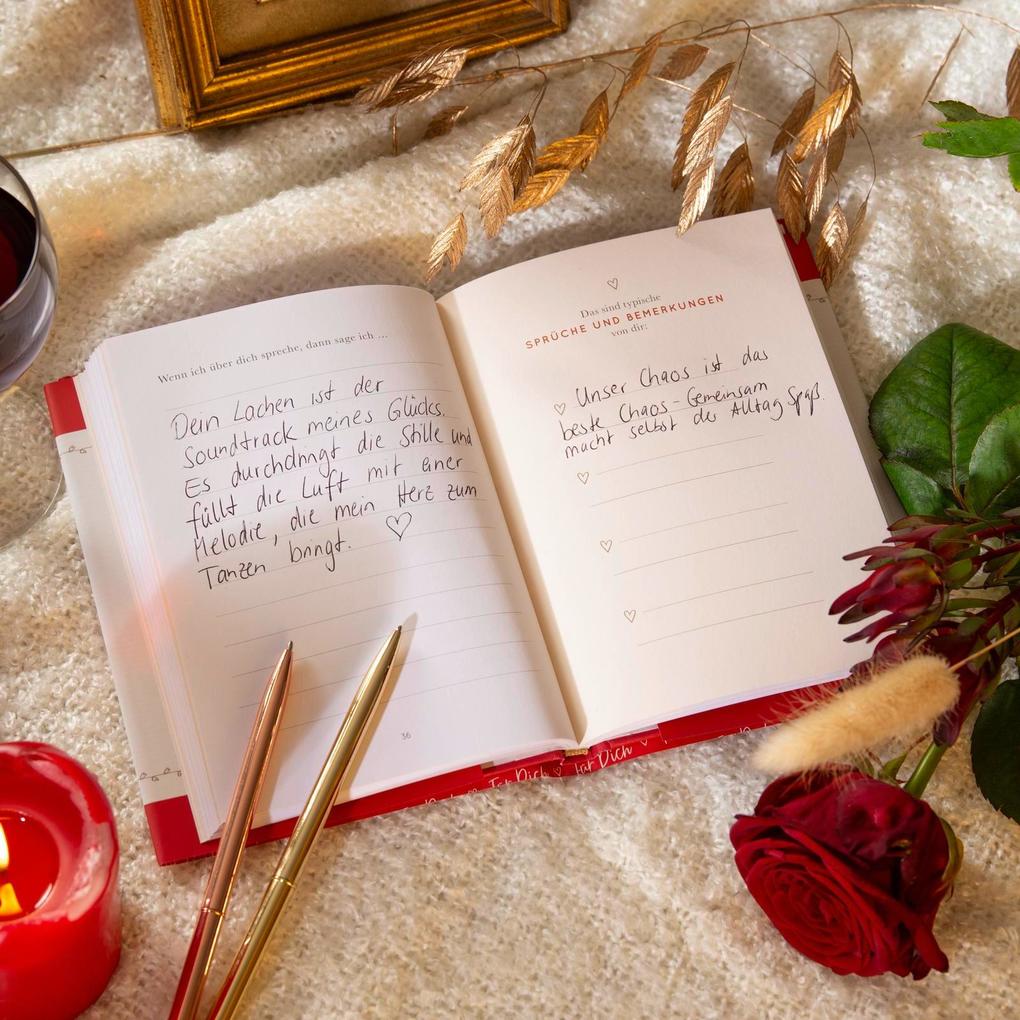 Wenn ich über dich spreche, dann sage ich ...
Dein Lachen ist der
Soundtrack meines Glücks.
Es durchdringt die Stille und
füllt die Luft mit einer
Melodie, die mein Herz zum
Tanzen bringt. ♡
36
Das sind typische
SPRÜCHE UND BEMERKUNGEN
von dir:
Unser Chaos ist das
beste Chaos - Gemeinsam
macht selbst der Alltag Spaß.
Für Dich ♡ Für Dich